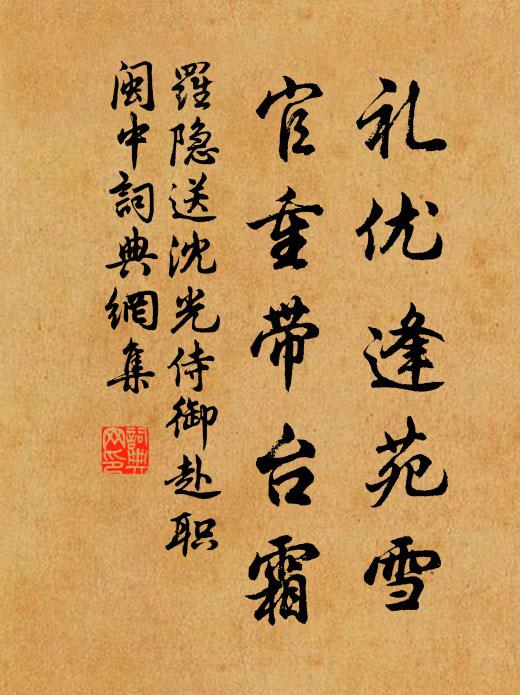 礼优逢苑雪
官重带台霜
羅隐送沈光侍御赴职
闽中詞典網集
詞典网印